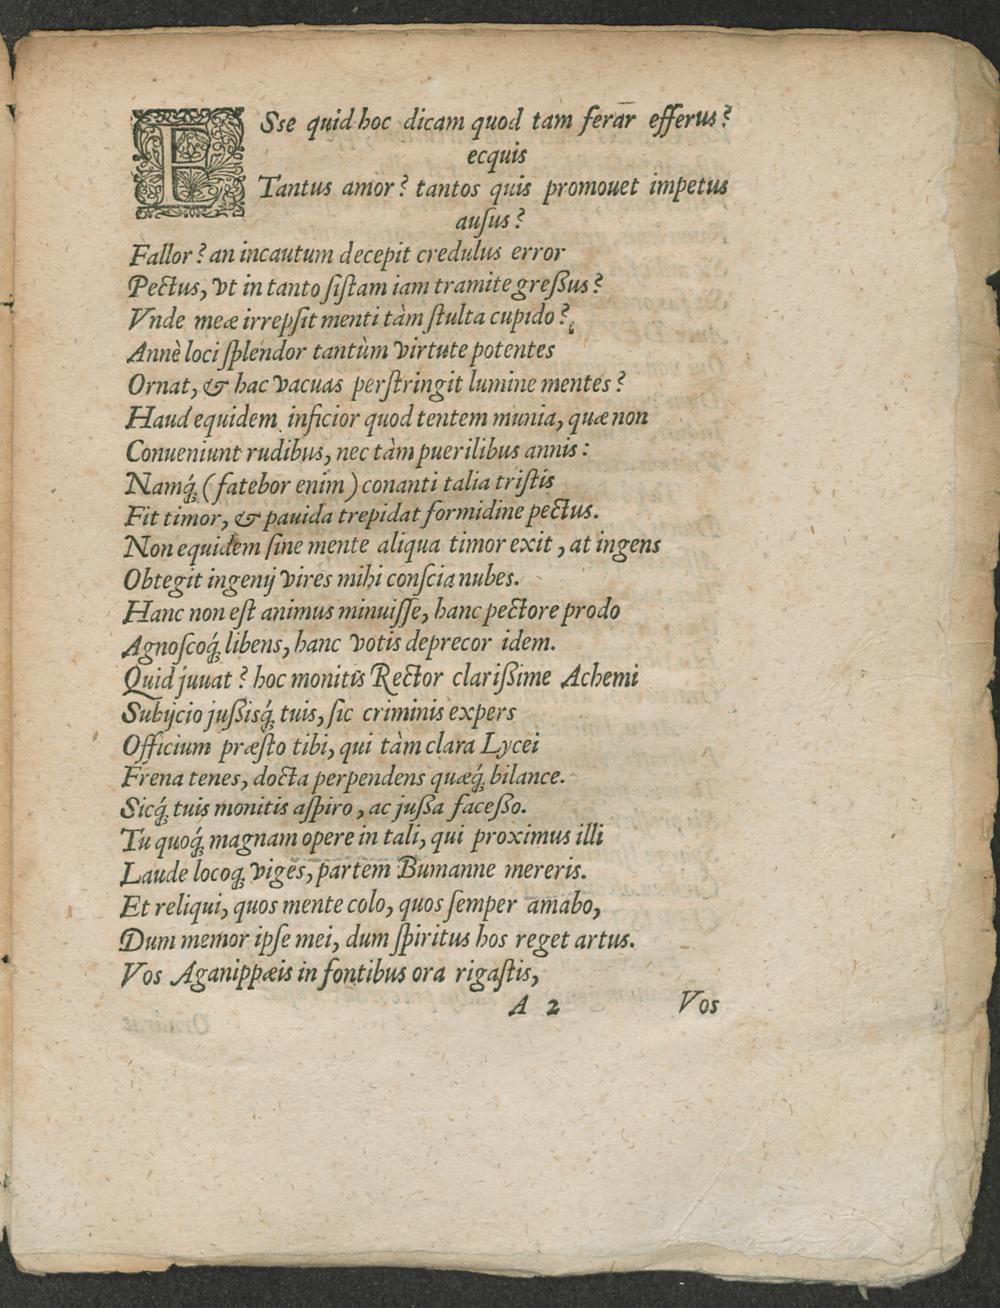 ESse quid hoc dicam quod tam ferar efferus?
ecquis
Tantus amor? tantos quis promouet impetus
auſus?
Fallor? an incautum decepit credulus error
Pectus, vt in tanto ſiſtam iam tramite greſſus?
Vnde meæ irrepſit menti tàm ſtulta cupido?
Annè loci ſplendor tantùm virtute potentes
Ornat, & hac vacuas perſtringit lumine mentes?
Haud equidem inficior quod tentem munia, quæ non
Conueniunt rudibus, nec tàm puerilibus annis:
Namq́; (fatebor enim) conanti talia triſtis
Fit timor, & pauida trepidat formidine pectus.
Non equidem ſine mente aliqua timor exit, at ingens
Obtegit ingenij vires mihi conſcia nubes.
Hanc non eſt animus minuiſſe, hanc pectore prodo
Agnoſcoq́; libens, hanc votis deprecor idem.
Quid juuat? hoc monitis Rector clariſſime Achemi
Subijcio juſſisq́; tuis, ſic criminis expers
Officium præſto tibi, qui tàm clara Lycei
Frena tenes, docta perpendens quæq́; bilance.
Sicq́; tuis monitis aſpiro, ac juſſa faceſſo.
Tu quoq́; magnam opere in tali, qui proximus illi
Laude locoq; viges, partem Bumanne mereris.
Et reliqui, quos mente colo, quos ſemper amabo,
Dum memor ipſe mei, dum ſpiritus hos reget artus.
Vos Aganippæis in fontibus ora rigaſtis,
A 2 Vos